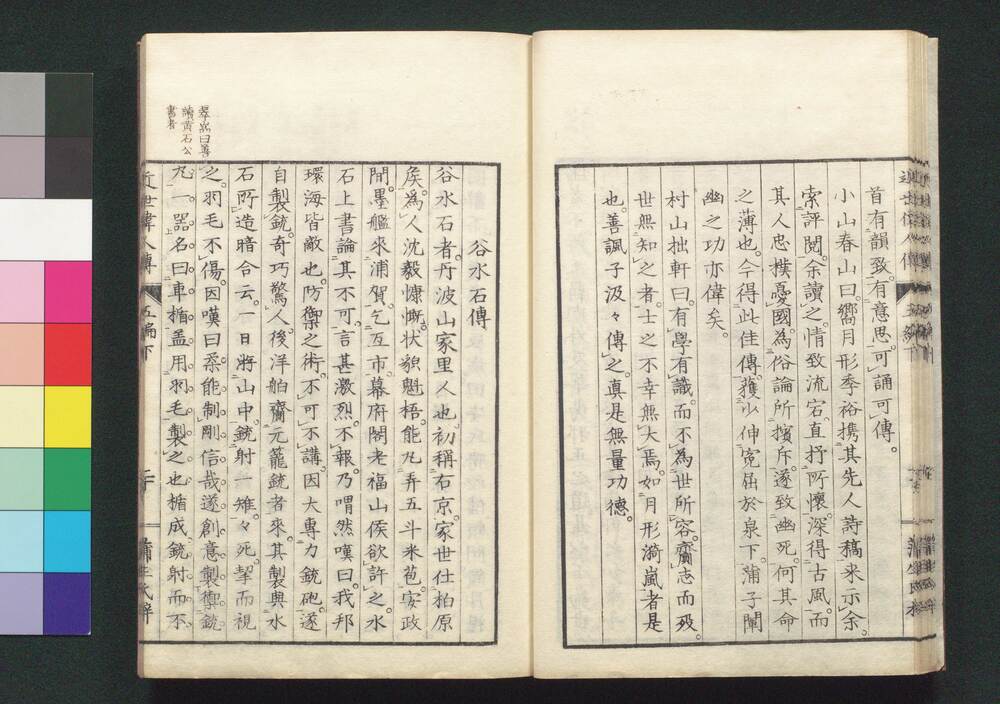 首有韻致。有意思。可誦可傳。
小山春山曰。嚮月形季裕携其先人詩稿來示余。
索評閱。余讀之。情致流宕。直抒所懷。深得古風。而
其人忠樸憂國。為俗論所擯斥。遂致幽死。何其命
之薄也。今得此佳傳。獲少伸寃屈於泉下。蒲子闡
幽之功亦偉矣。
村山拙軒曰。有學有識。而不為世所容。齎志而殁。
世無知之者。士之不幸無大焉。如月形漪嵐者是
也。善諷子汲々傳之。真是無量功德。
谷水石傳
谷水石者。丹波山家里人也。初稱右京。家世仕柏原
矦。為人沈毅慷慨。狀貌魁梧。能丸弄五斗米苞。安政
間。墨艦來浦賀。乞互市。幕府閣老福山侯欲許之。水
石上書論其不可。言甚激烈。不報。乃喟然嘆曰。我邦
環海皆敵也。防禦之術。不可不講。因大專力銃砲。遂
自製銃。奇巧驚人。後洋舶齎元籠銃者來。其製與水
石所造暗合云。一日將山中。銃射一雉。々死。挈而視
之。羽毛不傷。因嘆曰。柔能制剛。信哉。遂創意製禦銃
丸一器。名曰車楯。盖用羽毛製之也。楯成。銃射而不
翠嵐曰善
讀黃石公
書者
近世偉人傳
五編下
二十
蒲生氏梓